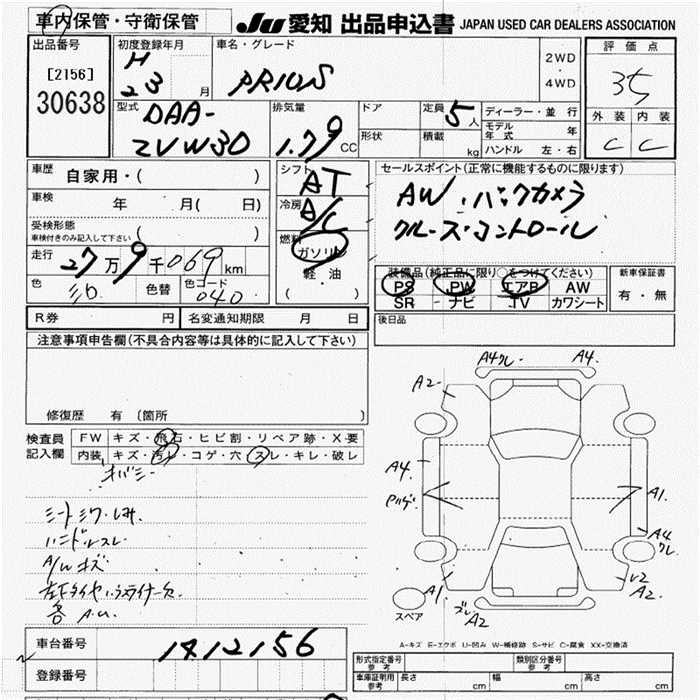 車内保管・守衛保管
JU 愛知 出品申込書 JAPAN USED CAR DEALERS ASSOCIATION
出品番号
[2156]
30638
初度登録年月
H
23 月
車名・グレード
PRIUS
2WD
・
4WD
評価点
35
外装 内装
C C
型式
DAA-
ZVW30
排気量
1.79 CC
ドア
形状
定員 5 人
積載 kg
ディーラー・並行
モデル年式 年
ハンドル 左・右
車歴 自家用・( )
車検 年 月( 日)
受検形態
車検付きのみ記入して下さい ( )
走行 27万9千069 km
色 シロ 色替 色コード 040
シフト AT
冷房 A/C
燃料 ガソリン
軽・油
( )
セールスポイント(正常に機能するものに限ります)
AW・バックカメラ
クルーズ・コントロール
装備品(純正品に限り○をつけてください)
PS PW エアB AW
SR ナビ TV カワシート
新車保証書
有・無
後日品
R券 円 名変通知期限 月 日
注意事項申告欄(不具合内容等は具体的に記入して下さい)
修復歴 有 (箇所 )
検査員記入欄
FW キズ・飛石・ヒビ割・リペア跡・X要
内装 キズ・汚レ・コゲ・穴・スレ・キレ・破レ
シートシワ・しみ.
ハンドルスレ
A/W キズ
左下タイヤハウスライナー欠
各 A.U.
A4 クレ A4.
A2
A4.
A1.
A4
クレ
A1
A2
A2.
スペア
A-キズ E-エクボ U-凹み W-補修跡 S-サビ C-腐食 XX-交換済
車台番号 1412156
登録番号
形式指定番号 参考
類別区分番号 参考
車庫証明用 参考 長さ cm 幅 cm 高さ cm